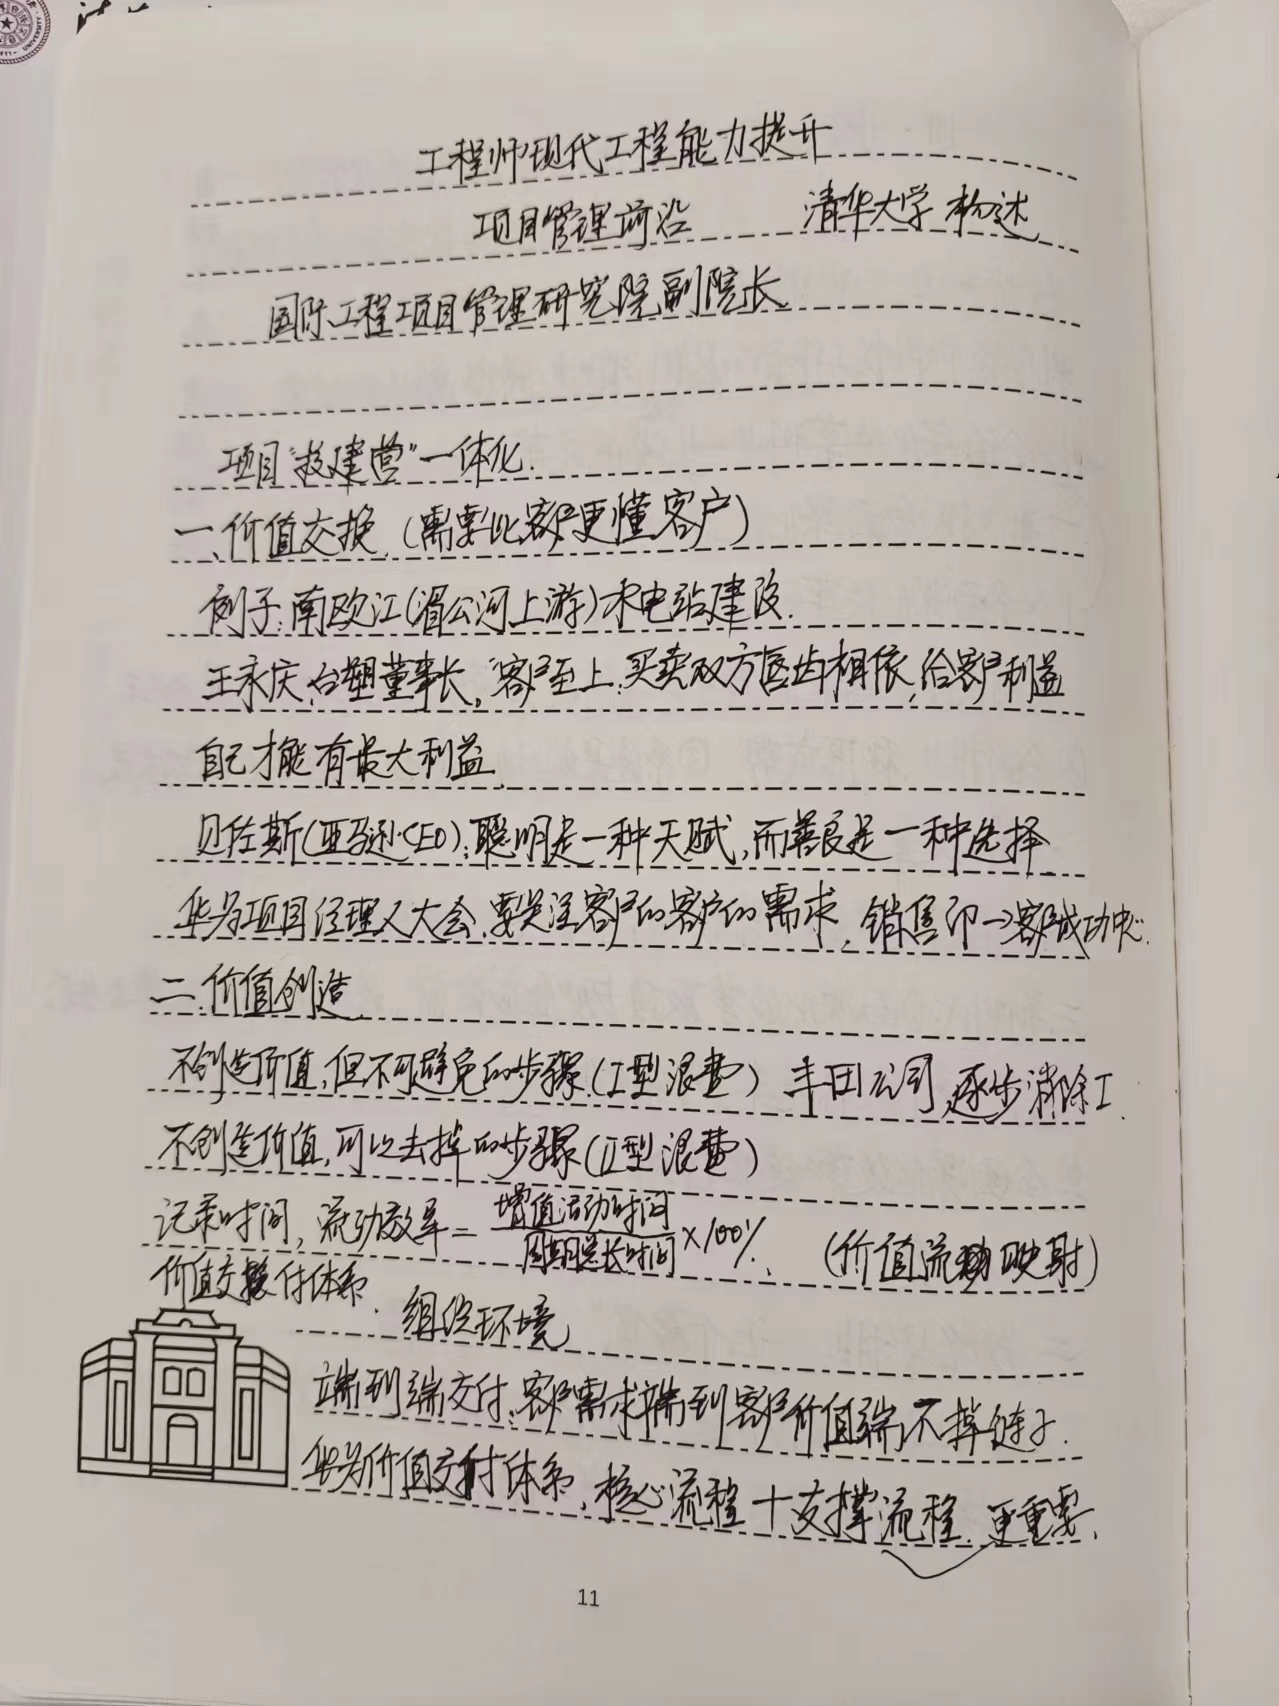 工程师现代工程能力提升
项目管理前沿 清华大学 杨达
国际工程项目管理研究院副院长
项目"投建营"一体化.
一、价值交换.(需要比客户更懂客户)
例子:南欧江(湄公河上游)水电站建设.
王永庆,台塑董事长,客户至上.买卖双方唇齿相依,给客户利益
自己才能有最大利益.
贝佐斯(亚马逊CEO):聪明是一种天赋,而善良是一种选择.
华为项目经理人大会.要关注客户的客户的需求,销售部→客户成功中心.
二.价值创造.
不创造价值,但不可避免的步骤(I型浪费) 丰田公司,逐步消除I.
不创造价值,可以去掉的步骤(II型浪费)
记录时间,流动效率=增值活动时间/周期总长时间×100%. (价值流映射)
价值交付体系. 组织环境
端到端交付,客户需求端到客户价值端,不掉链子.
华为价值交付体系,核心流程+支撑流程.更重要.
11